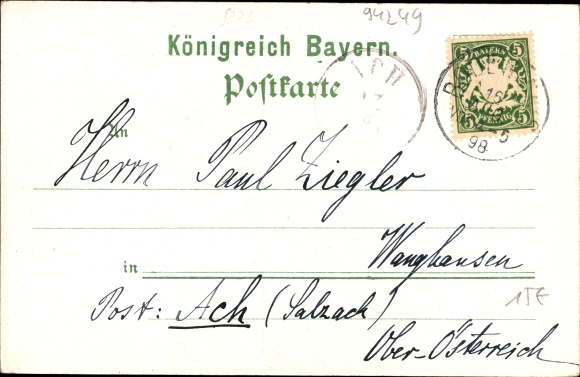 94249
Königreich Bayern.
Postkarte
ACH
BAYERN
5 5
5 5
PFENNIG
16
98
5
An
Herrn Paul Ziegler
Wanghausen
in
15E
Post: Ach (Salzach)
Ober-Österreich